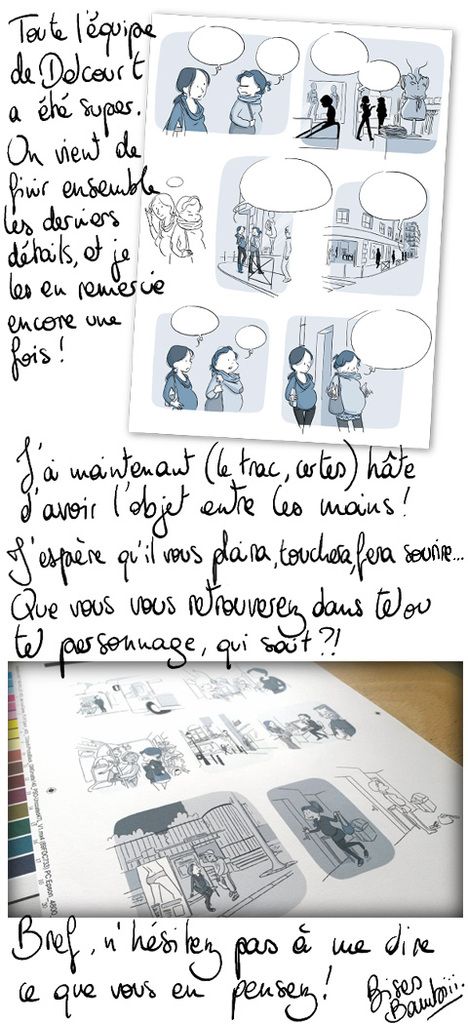 Toute l'équipe
de Delcourt
a été super.
On vient de
finir ensemble
les derniers
détails, et je
les en remercie
encore une
fois !
J'ai maintenant (le trac, certes) hâte
d'avoir l'objet entre les mains !
J'espère qu'il vous plaira, touchera, fera sourire...
Que vous vous retrouverez dans tel ou
tel personnage, qui sait ?!
Bref, n'hésitez pas à me dire
ce que vous en pensez !
Bises
Bambiii.